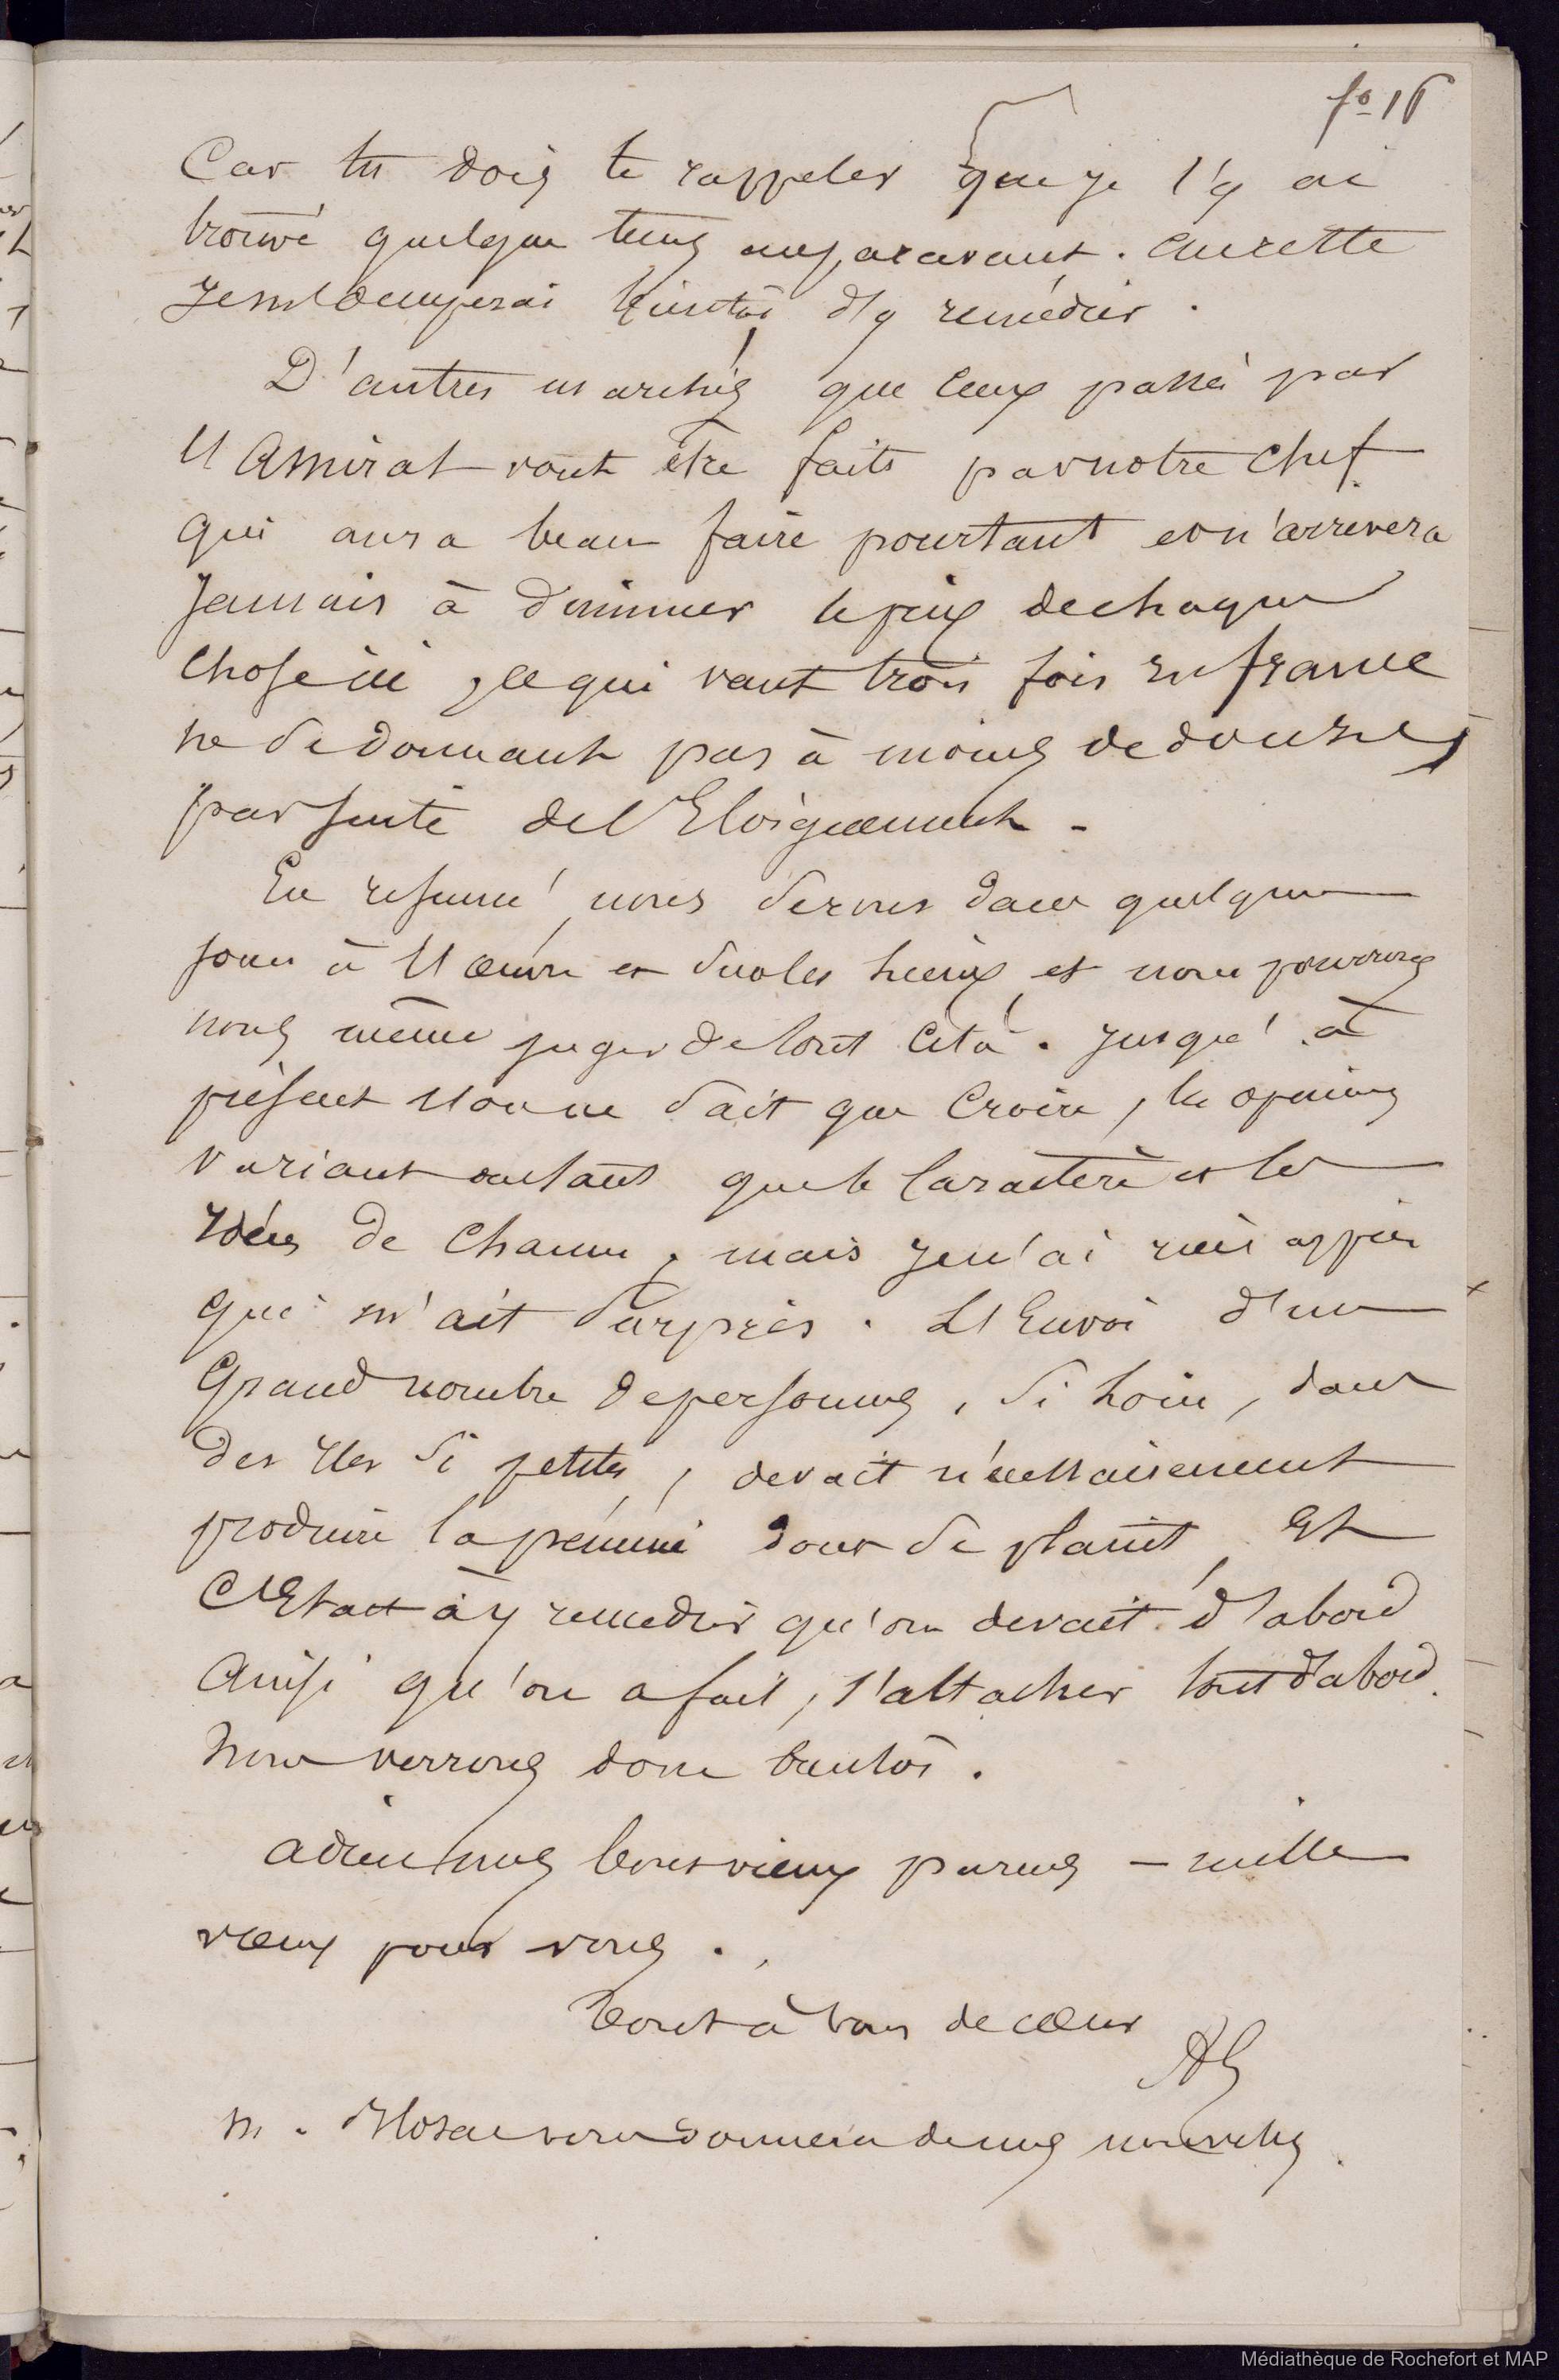 fo 16
Car tu dois te rappeler que je l'y ai
trouvé quelque tems auparavant. Au reste
Je m'occuperai bientôt d'y remédier.
D'autres marchés que ceux passé par
l'Amiral vont être faits par notre chef
qui aura beau faire pourtant et n'arrivera
Jamais à diminuer le prix de chaque
chose ici, ce qui vaut trois fois en france
ne se donnant pas à moins de douze,
par suite de l'Eloignement.
En resumé, nous serons dans quelques
jours à l'œuvre et sur les lieux, et nous pourrons
nous même juger de tout cela. Jusqu'à
présent l'on ne sait que croire, les opinions
variant autant que le Caractère et les
Idées de Chacun, mais je n'ai rien appris
qui m'ait surpris. L'Envoi d'un
Grand nombre de personnes, si loin, dans
des Iles si petites, devait nécessairement
produire la pénurie dont on se plaint, Et
C'Etait à y remedier qu'on devait d'abord
Ainsi qu'on a fait, s'attacher tout d'abord.
Nous verrons donc bientôt.
Adieu mes bons vieux parens – mille
vœux pour vous.
Tout à vous de cœur
AG
M. vous donnera de mes nouvelles.
Médiathèque de Rochefort et MAP